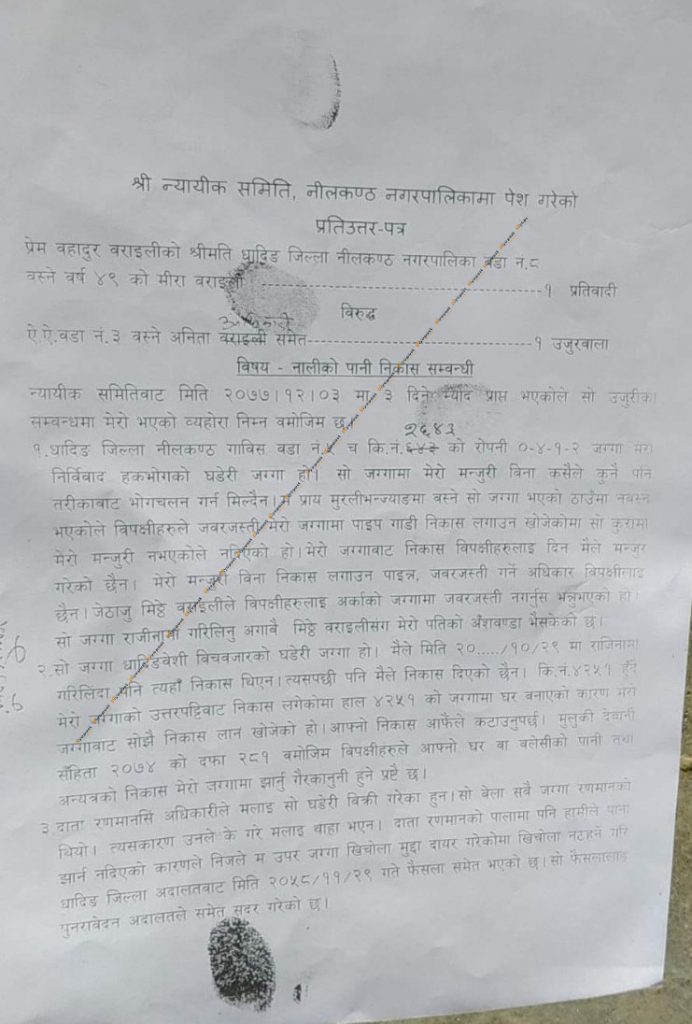 श्री न्यायीक समिति, नीलकण्ठ नगरपालिकामा पेश गरेको
प्रतिउत्तर-पत्र
प्रेम वहादुर वराइलीको श्रीमति धादिङ जिल्ला नीलकण्ठ नगरपालिका वडा नं.८
वस्ने वर्ष ४९ को मीरा वराइली ------------------------------१ प्रतिवादी
विरुद्ध
ऐ.ऐ.वडा नं.३ वस्ने अनिता वराइली समेत------------------------------१ उजुरवाला
विषय - नालीको पानी निकास सम्वन्धी
न्यायीक समितिवाट मिति २०७७।१२।०३ मा ३ दिने म्याद प्राप्त भएकोले सो उजुरीका
सम्वन्धमा मेरो भएको व्यहोरा निम्न वमोजिम छ।
२६४३
१.धादिङ जिल्ला नीलकण्ठ गाविस वडा नं. च कि.नं.६४३ को रोपनी ०-४-१-२ जग्गा मेरो
निर्विवाद हकभोगको घडेरी जग्गा हो। सो जग्गामा मेरो मन्जुरी विना कसैले कुनै पनि
तरीकावाट भोगचलन गर्न मिल्दैन। म प्राय मुरलीभन्ज्याङमा वस्ने सो जग्गा भएको ठाउँमा नवस्ने
भएकोले विपक्षीहरुले जवरजस्ती मेरो जग्गामा पाइप गाडी निकास लगाउन खोजेकोमा सो कुरामा
मेरो मन्जुरी नभएकोले नदिएको हो। मेरो जग्गावाट निकास विपक्षीहरुलाइ दिन मैले मन्जुर
गरेको छैन। मेरो मन्जुरी विना निकास लगाउन पाइन्न, जवरजस्ती गर्ने अधिकार विपक्षीलाइ
छैन। जेठाजु मिठ्ठे वराइलीले विपक्षीहरुलाइ अर्काको जग्गामा जवरजस्ती नगर्नुस भन्नुभएको हो।
सो जग्गा राजीनामा गरिलिनु अगावै मिठ्ठे वराइलीसंग मेरो पतिको अँशवण्डा भैसकेको छ।
२.सो जग्गा धादिङवेशी विचवजारको घडेरी जग्गा हो। मैले मिति २०...../१०/२९ मा राजिनामा
गरिलिंदा पनि त्यहाँ निकास थिएन। त्यसपछी पनि मैले निकास दिएको छैन। कि.नं.४२५१ हुँदै
मेरो जग्गाको उत्तरपट्टिवाट निकास लगेकोमा हाल ४२५१ को जग्गामा घर वनाएको कारण मेरो
जग्गावाट सोझै निकास लान खोजेको हो। आफ्नो निकास आफैंले कटाउनुपर्छ। मुलुकी देवानी
सँहिता २०७४ को दफा २८१ वमोजिम विपक्षीहरुले आफ्नो घर वा वलेसीको पानी तथा
अन्यत्रको निकास मेरो जग्गामा झार्नु गैरकानुनी हुने प्रष्टै छ।
३.दाता रणमानसिं अधिकारीले मलाइ सो घडेरी विक्री गरेका हुन। सो वेला सवै जग्गा रणमानको
थियो। त्यसकारण उनले के गरे मलाइ वाहा भएन। दाता रणमानको पालामा पनि हामीले पानी
झार्न नदिएको कारणले निजले म उपर जग्गा खिचोला मुद्दा दायर गरेकोमा खिचोला नठहर्ने गरि
धादिङ जिल्ला अदालतवाट मिति २०५८/११/२९ गते फैसला समेत भएको छ। सो फैसलालाइ
पुनरावेदन अदालतले समेत सदर गरेको छ।